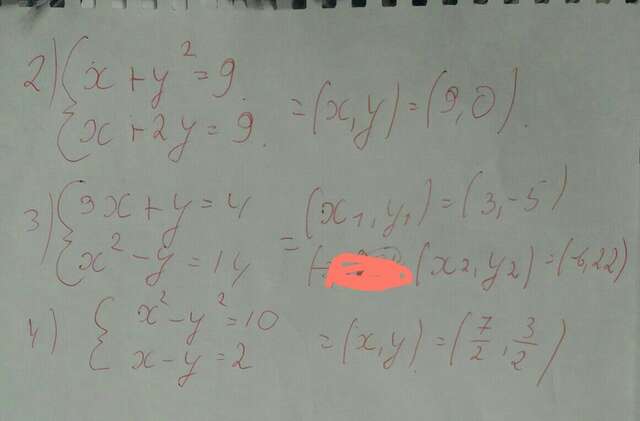 2) { x + y² = 9
{ x + 2y = 9. = (x, y) = (9, 0).
3) { 3x + y = 4 (x₁, y₁) = (3, -5)
{ x² - y = 14 = (x₂, y₂) = (-6, 22)
4) { x² - y² = 10
{ x - y = 2 = (x, y) = (7/2, 3/2)